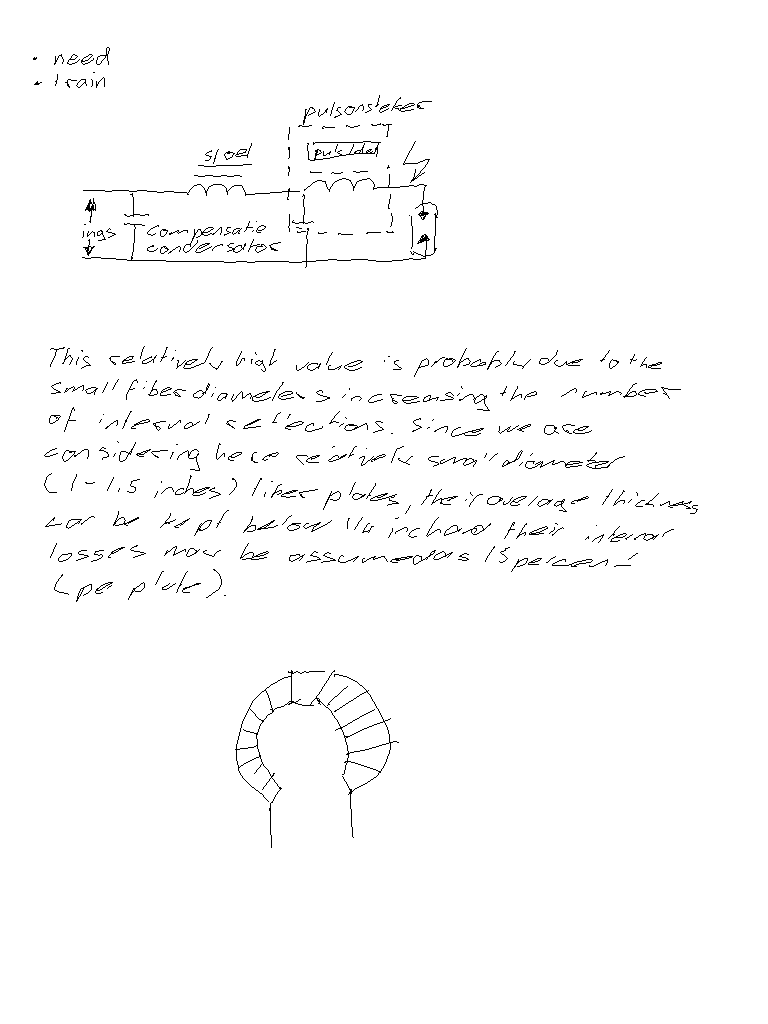 • need
• train
pulsonsteker
spoel
pulsdeel
ings
compensatie
condensator
This relatively high value is probably due to the
small fiber diameters increasing the number
of internal reflections. Since we are
considering here relatively small diameter
(1-1.5 inches) fiber plates, their average thickness
can be kept below 1/4 inch and their internal
losses may be assumed as 15 percent
(per plate).